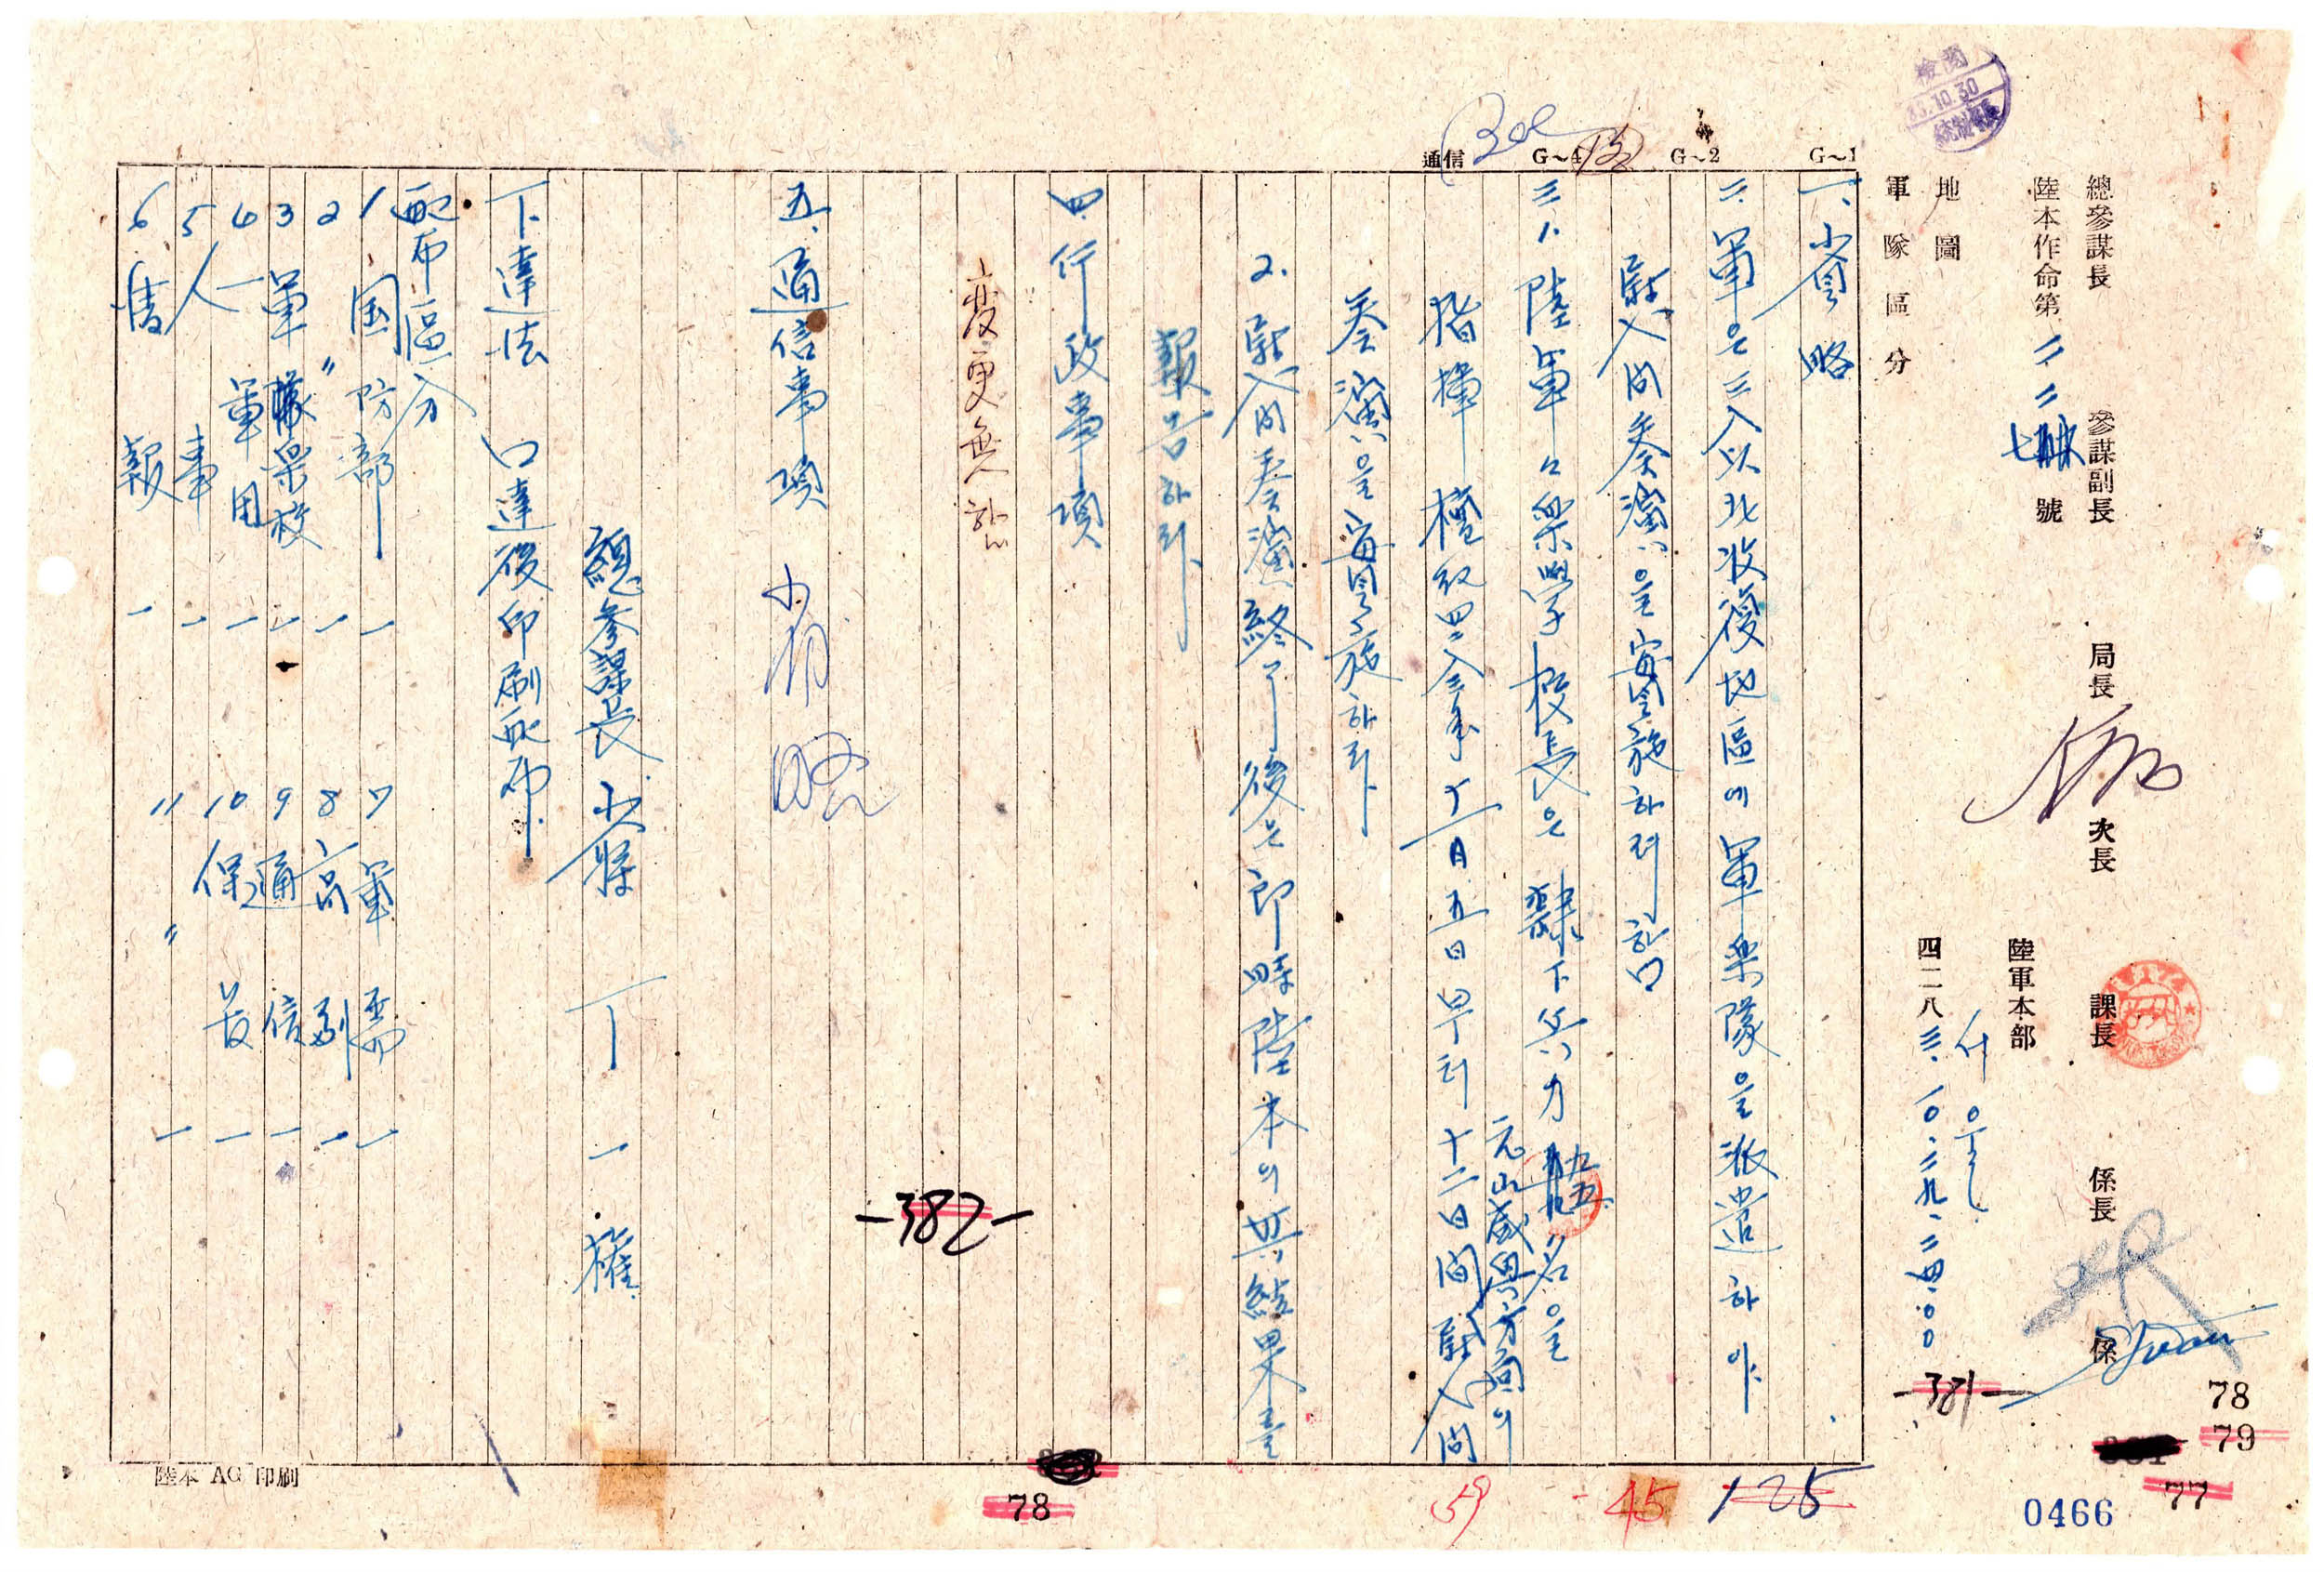 檢閱
83.10.30
總參謀長 參謀副長 局長 次長 課長 係長 係
陸本作命第二二七號
陸軍本部
地圖
四二八三.一〇.二九.二四〇〇
軍隊區分
G~1
G~2
G~4
通信
一、省略
二、軍은 三八以北收復地區에 軍樂隊을 派遣하야
慰问奏演을 實施하려 함
三、1、陸軍々樂學校長은 隸下兵力 五五名을
元山咸興方面의
指揮 檀紀四二八三年十一月五日早터 十二日间 慰问
奏演을 實施하라
2、慰问奏演終了後는 即時陸本의 其結果를
報告하라
四、行政事項
變更無함
五、通信事項 省略
總參謀長 少將 丁一權
下達法 口達後印刷配布
配布區分
1 国防部 一
2 〃 一
3 軍樂学校 一
4 一軍団 一
5 人事 一
6 情報 一
7 軍需 一
8 高副 一
9 通信 一
10 保管 一
11 〃 一
-382-
-381-
78
79
77
78
125
45
59
0466
陸本 AG 印刷